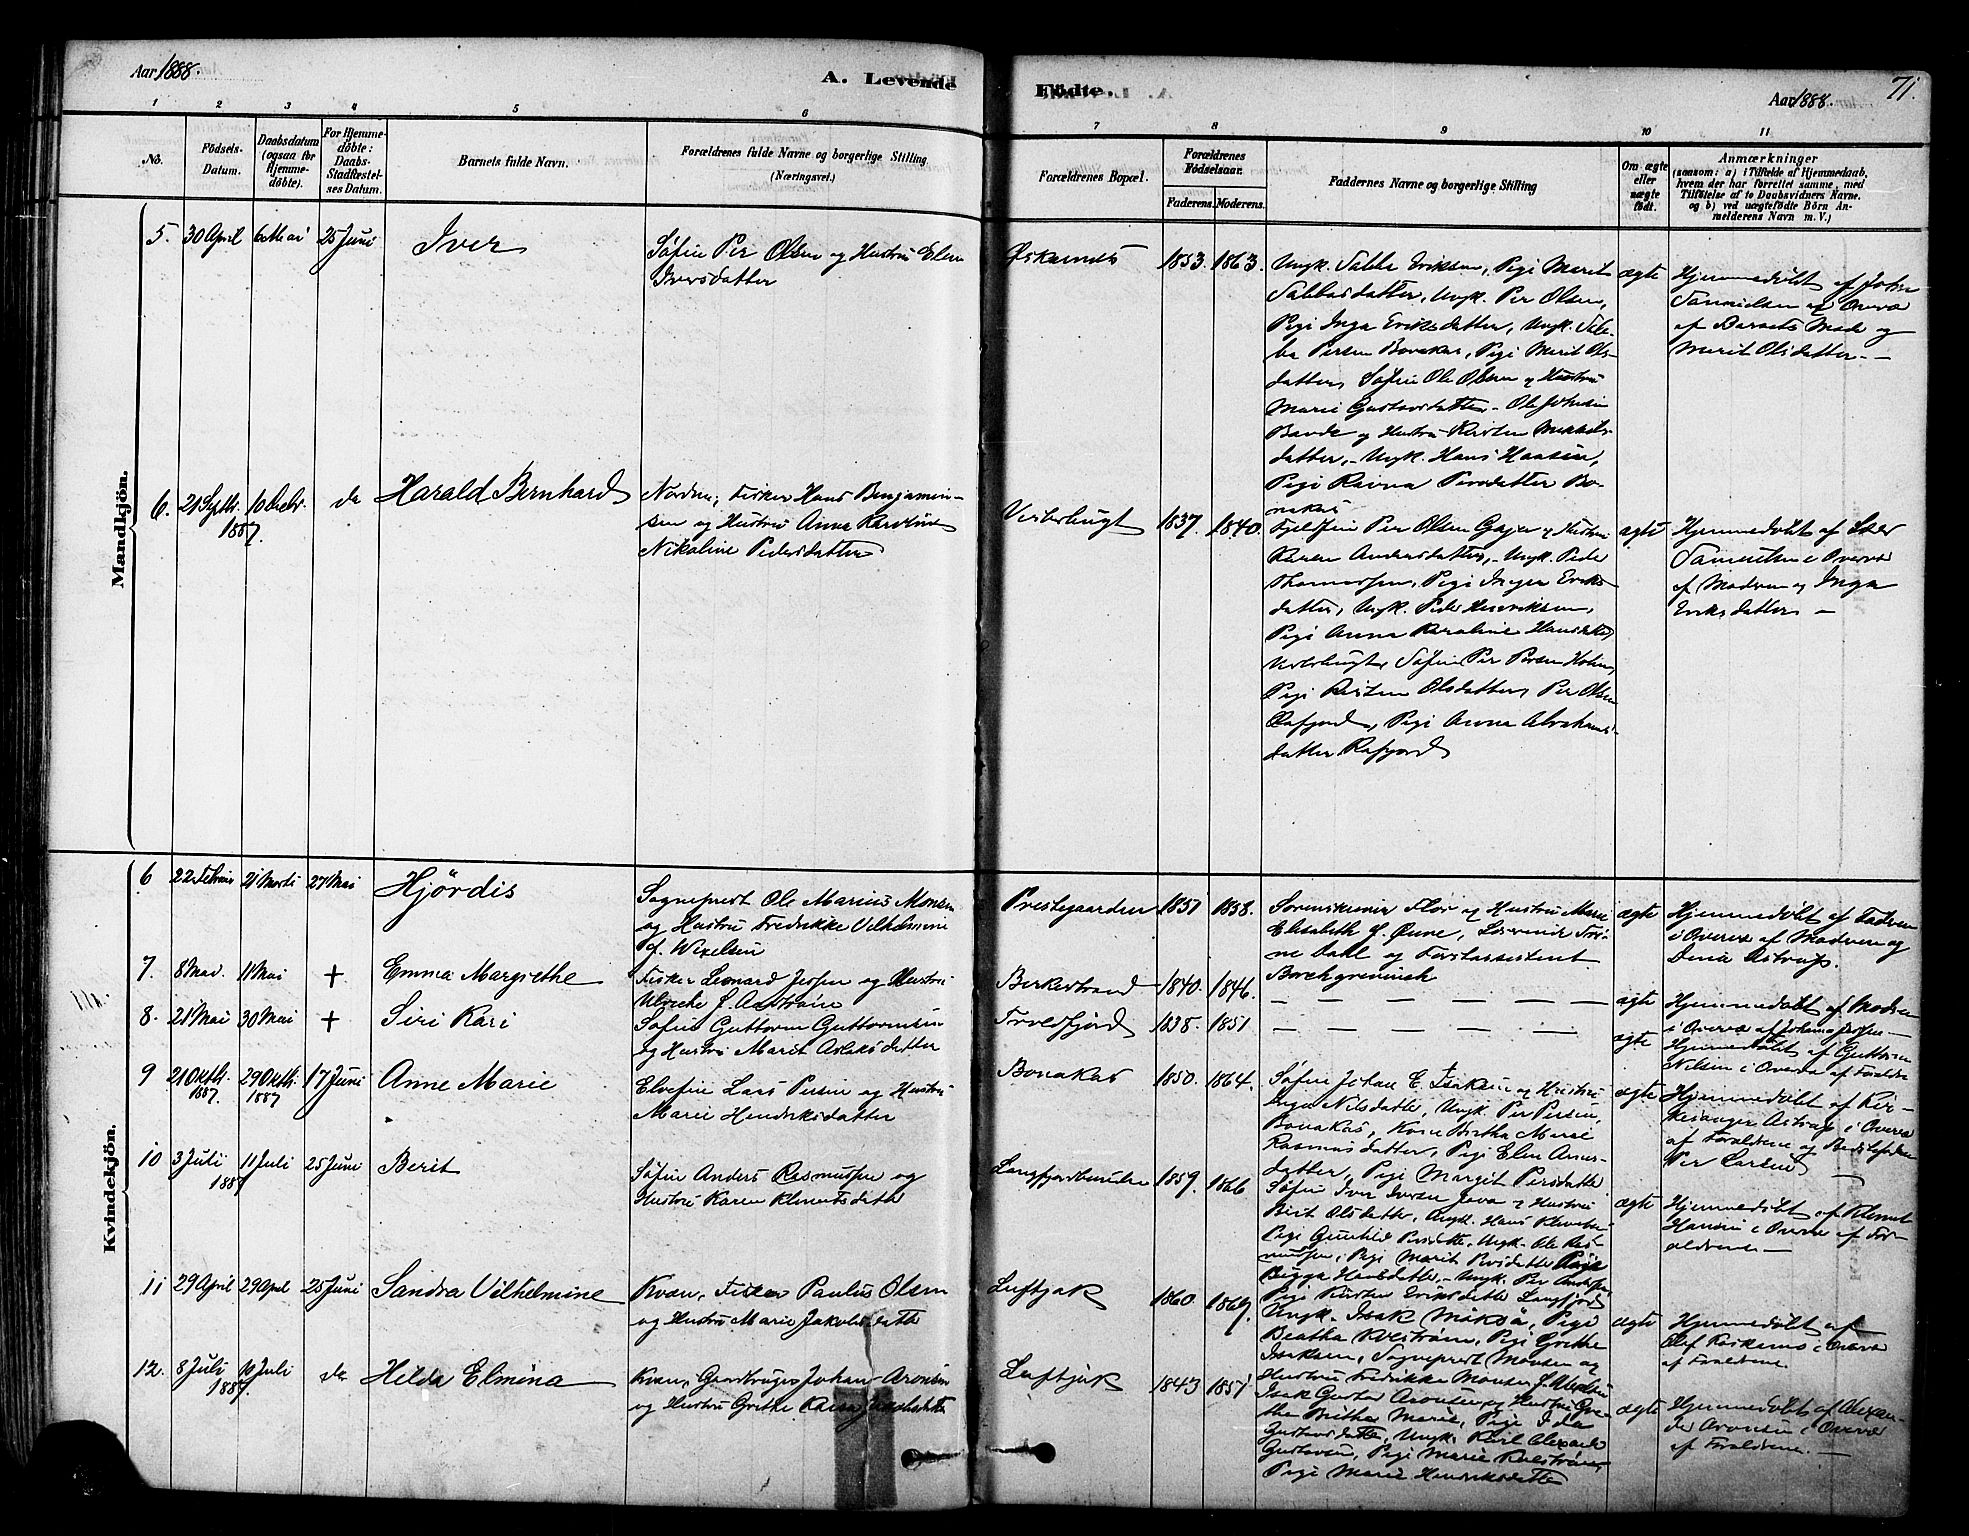 Aar 1888.
A. Levende
Födte.
Aar 1888.
71.
1 2 3 4 5 6
7 8 9 10 11
No.
Födsels-
Datum.
Daabsdatum
(ogsaa for
Hjemme-
döbte).
For Hjemme-
döbte:
Daabs-
Stadfæstel-
ses Datum.
Barnets fulde Navn.
Forældrenes fulde Navne og borgerlige Stilling
(Næringsvei.)
Forældrenes Bopæl.
Forældrenes
Födselsaar.
Faderens.
Moderens.
Faddernes Navne og borgerlige Stilling
Om ægte
eller
uægte
födt.
Anmærkninger
(saasom: a) i Tilfælde af Hjemmedaab,
hvem der har forrettet samme, med
Tilföielse af to Daabsvidners Navne.
og b) ved uægtefödte Börn An-
melderens Navn m. V.)
Mandkjön.
5. 30 April 6 Mai 25 Juni Iver
Søfin Per Olsen og Hustru Elen
Iversdatter
1853. 1863.
Ungk. Sabba Eriksen, Pige Marit
Sabbasdatter, Ungk. Per Olsen,
Pige Inga Eriksdatter, Ungk. Sab-
ba Persen Bonakas, Pige Marit Ols-
datter, Søfin Ole Olsen og Hustru
Marie Gustavsdatter - Ole Johnsen
og Hustru Kirsten Mikkels-
datter, - Ungk. Hans Hansen,
Pige Ravna Persdatter Bo-
nakas
ægte
Hjemmedøbt af John
Samuelsen i Overvær
af Barnets Moder og
Marit Olsdatter. -
6. 21 Septbr. 1887 10 Decbr. do Harald Bernhard
Nordm., Fisker Hans Benjamin-
sen og Hustru Anna Karoline
Nikoline Pedersdatter
Vesterbugt
1837. 1840.
Fjeldfin Per Olsen Gaja og Hustru
Karen Andersdatter, - Ungk. Peder
Thomassen, Pige Inga Eriks-
datter, Ungk. Peder Henriksen,
Pige Anna Karoline Hansdatter
Vesterbugt, Søfin Per Persen Holm,
Pige Kristen Olsdatter, Per Olsen
Rafjord, Pige Anna Abrahams-
datter Rafjord
ægte
Hjemmedøbt af
Samuelsen i Overvær
af Moderen og Inga
Eriksdatter -
Kvindekjön.
6 22 Februar 21 Marts 27 Mai Hjørdis
Sogneprest Ole Marius Monsen
og Hustru Fredrikke Vilhelmine
f. Wexelsen
Prestegaarden
1851 1858.
Sorenskriver Flor og Hustru Marie
Elisabeth f. Øune,
Dahl og Forstassistent
Borchgrevinck
ægte
Hjemmedøbt af Faderen
i Overvær af Moderen og
Dina Astrup.
7. 8 Mai. 11 Mai + Emma Margrethe
Fisker Leonard Jessen og Hustru
Ulrikke f. Aastrøm
Birkestrand
1840. 1846.
ægte
Hjemmedøbt af Moderen
i Overvær af
8. 21 Mai 30 Mai + Siri Kari
Søfin Guttorm Guttormsen
og Hustru Marit Aslaksdatter
Troldfjord
1838. 1851
ægte
Hjemmedøbt af Guttorm
Nilsen i Overvær af Forældre
9 21 Oktbr. 1887. 29 Oktbr. 1887 17 Juni Anne Marie
Elvefin Lars Persen og Hustru
Marie Hendriksdatter
Bonakas
1850. 1864.
Søfin Johan E. Isaksen og Hustru
Inga Nilsdatter, Ungk. Per Persen
Bonakas, Kone Birtha Marie
Rasmusdatter, Pige Elen Anders-
datter, Pige Margit Persdatter
ægte
Hjemmedøbt af Kir-
kesanger Astrup i Overvær
af Forældrene og Bedstefader
Per Larsen
10 3 Juli 1887 11 Juli 25 Juni Berit
Søfin Anders Rasmussen og
Hustru Karen Klemetsdatter
Langfjordbunden
1859. 1866
Søfin Iver Iversen Java og Hustru
Berit Olsdatter, Ungk. Hans Klemetsen
Pige Gunhild Persdatter, Ungk. Ole Ras-
mussen, Pige Marit Persdatter
Bigga Hansdatter, - Ungk. Per Andersen
Pige Kirsten Eriksdatter Langfjord
ægte
Hjemmedøbt af Klemet
Hansen i Overvær af For-
ældrene -
11 29 April 29 April 25 Juni Sandra Vilhelmine
Kvæn, Fisker Paulus Olsen
og Hustru Marie Jakobsdatter
Luftjok
1860. 1867.
Ungk. Isak Pige
Beatha Kolstrøm, Pige Grethe
Isaksen, Sogneprest Monsen og
Hustru Fredrikke Monsen f. Wexelsen
ægte
Hjemmedøbt af
Olef i Overvær
af Forældrene.
12. 8 Juli 1887. 10 Juli do Hilda Elmina
Kvæn, Gaardbruger Johan Aronsen
og Hustru Grethe Jakobsdatter
Luftjok
1843 1851
Isak Gustav Aronsen og Hustru Gre-
the Britha Marie, Pige Ida
Gustavsdatter, Ungk. Karl Alexander
Gustavsen, Pige Marie Kolstrøm,
Pige Marie Hendriksdatter
ægte
Hjemmedøbt af Alexan-
der Aronsen i Overvær
af Forældrene. -